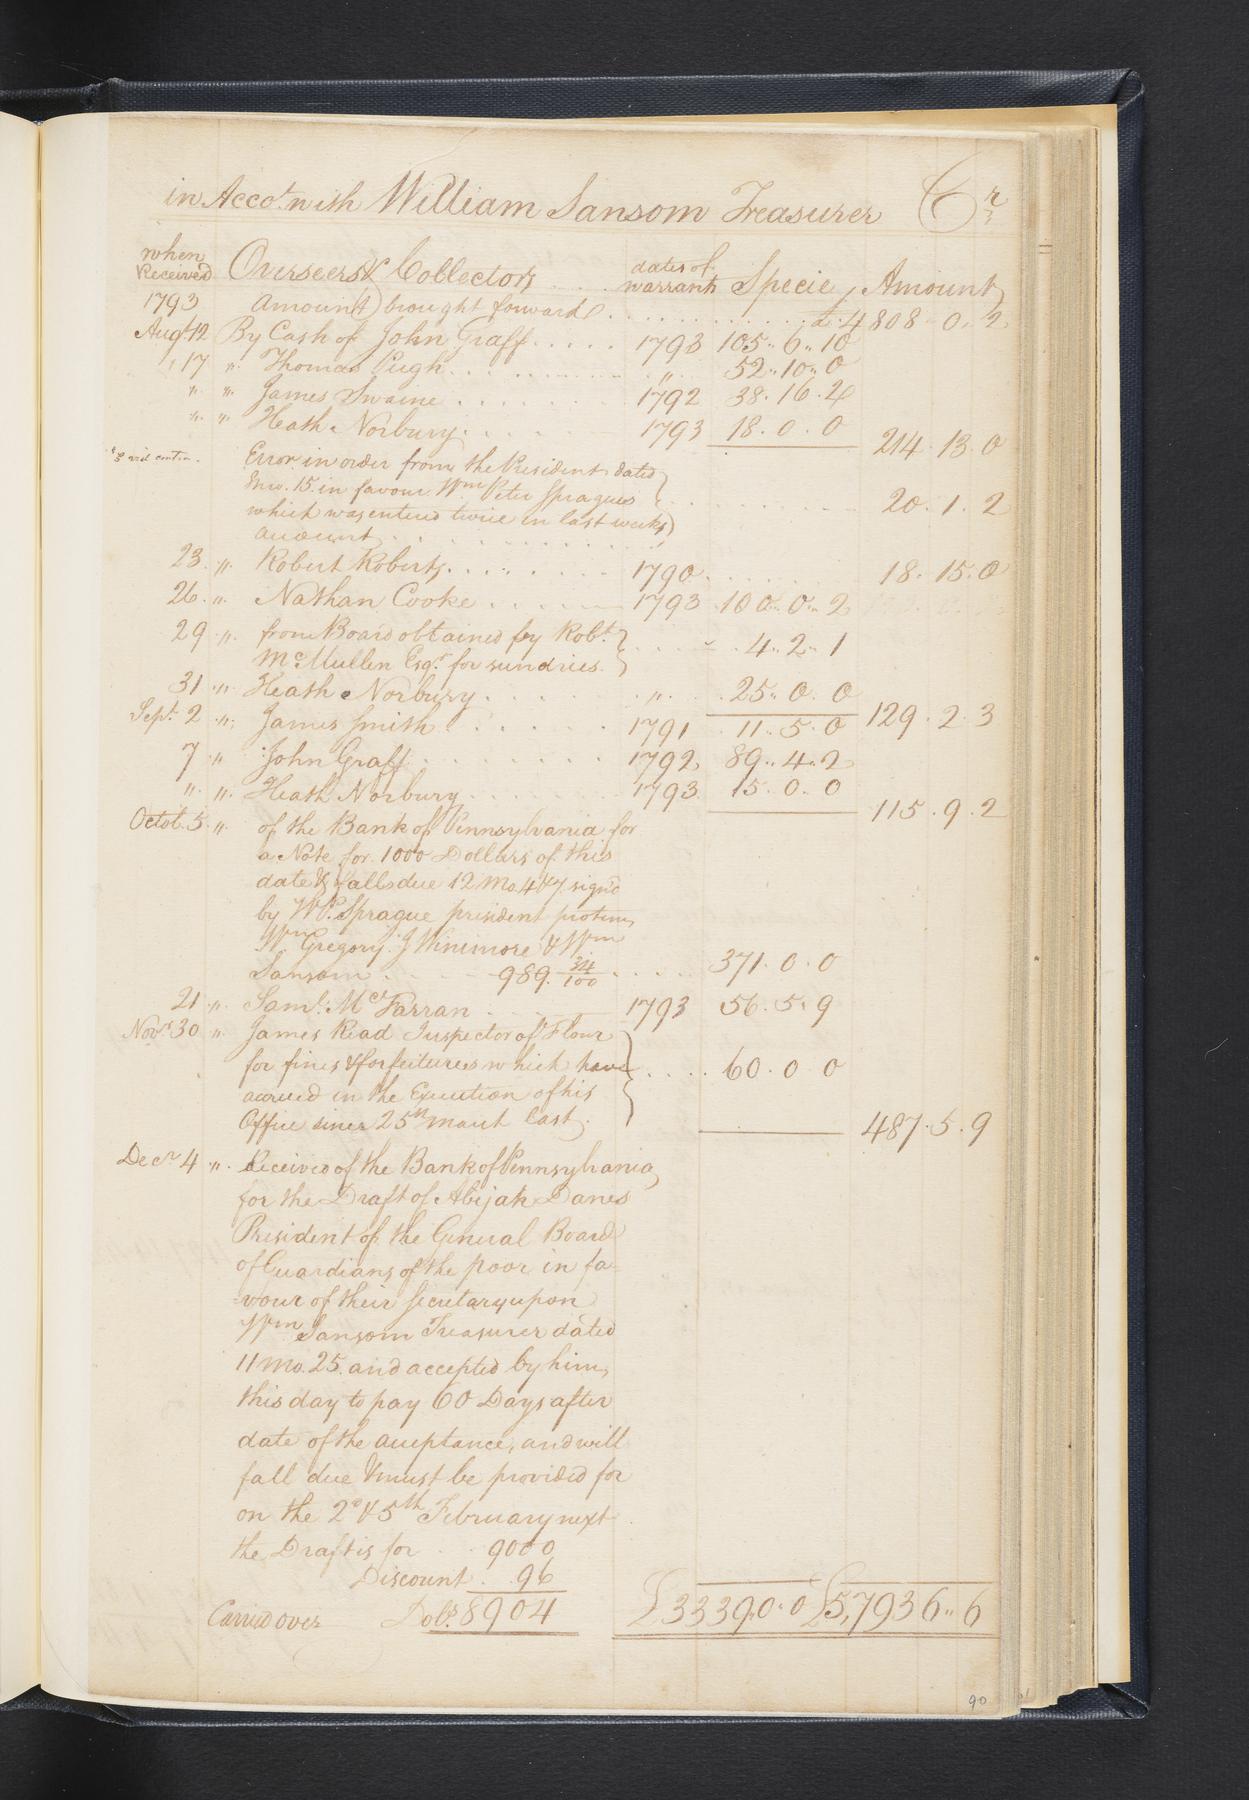 in Accot. with William Sansom Treasurer Cr
when Received Overseers & Collectors dates of warrants Specie Amount
1793 Amount brought forward £ 4808 - 0 - 2
Augt 12 By Cash of John Graff 1793 105 „ 6 „ 10
„ 17 „ Thomas Pugh „ 52 „ 10 „ 0
„ „ James Swaine 1792 38 . 16 . 2
„ „ Heath Norbury 1793 18 . 0 . 0 214 . 13 . 0
Error in order from the President dated
15 in favour Wm Peter Sprague
which was entered twice in last weeks 20 . 1 . 2
account
23 „ Robert Roberts 1790 18 . 15 . 0
26 „ Nathan Cooke 1793 100 „ 0 „ 2
29 „ from Board obtained by Robt.
McMullen Esqr. for sundries 4 „ 2 „ 1
31 „ Heath Norbury „ 25 „ 0 . 0
Sept. 2 „ James Smith 1791 11 . 5 . 0 129 . 2 . 3
7 „ John Graff 1792 89 „ 4 „ 2
„ „ Heath Norbury 1793 15 . 0 . 0 115 . 9 . 2
Octob. 5 „ of the Bank of Pennsylvania for
a Note for 1000 Dollars of this
date & falls due 12 Mo. 4 & 7 sign'd
by W. P. Sprague president protem
Wm Gregory J Winemore & Wm
Sansom 989 34/100 371 . 0 . 0
21 „ Saml. McFarran 1793 56 . 5 . 9
Novr. 30 „ James Read Inspector of Flour
for fines & forfeitures which have 60 . 0 0
accrued in the Execution of his
Office since 25th March last 487 . 5 . 9
Decr 4 „ Received of the Bank of Pennsylvania
for the Draft of Abijah Danes
President of the General Board
of Guardians of the poor in fa-
vour of their Secretary upon
Wm Sansom Treasurer dated
11 mo. 25. and accepted by him
this day to pay 60 Days after
date of the acceptance, and will
fall due & must be provided for
on the 2d & 5th February next
the Draft is for 9000
Discount . 96
Carried over Dolrs. 8904 £3339.0.0 £5,793 6 „ 6
90